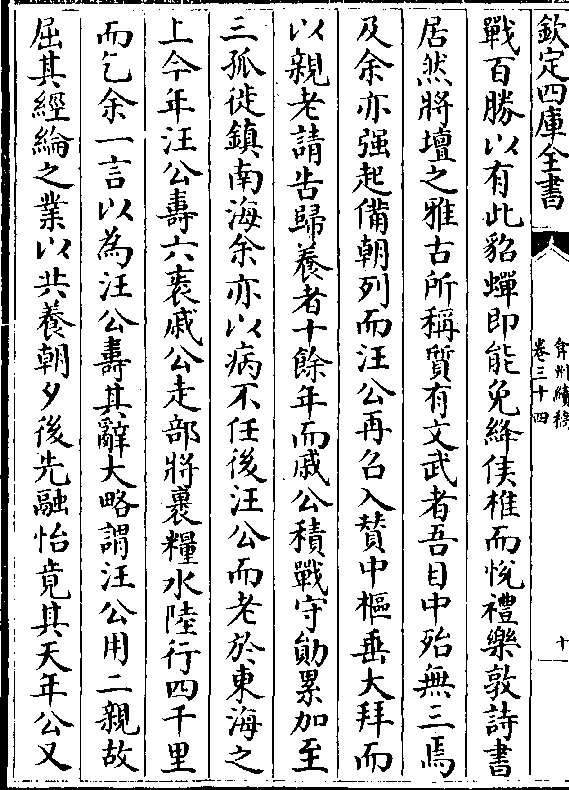 欽定四庫全書
弇州續稿
卷三十四
十
戰百勝以有此貂蟬即能免絳侯椎而悅禮樂敦詩書
居然將壇之雅古所稱質有文武者吾目中殆無三焉
及余亦强起備朝列而汪公再召入贊中樞垂大拜而
以親老請告歸養者十餘年而戚公積戰守勛累加至
三孤徙鎮南海余亦以病不任後汪公而老於東海之
上今年汪公壽六袠戚公走部將裹糧水陸行四千里
而乞余一言以為汪公壽其辭大略謂汪公用二親故
屈其經綸之業以共養朝夕後先融怡竟其天年公又